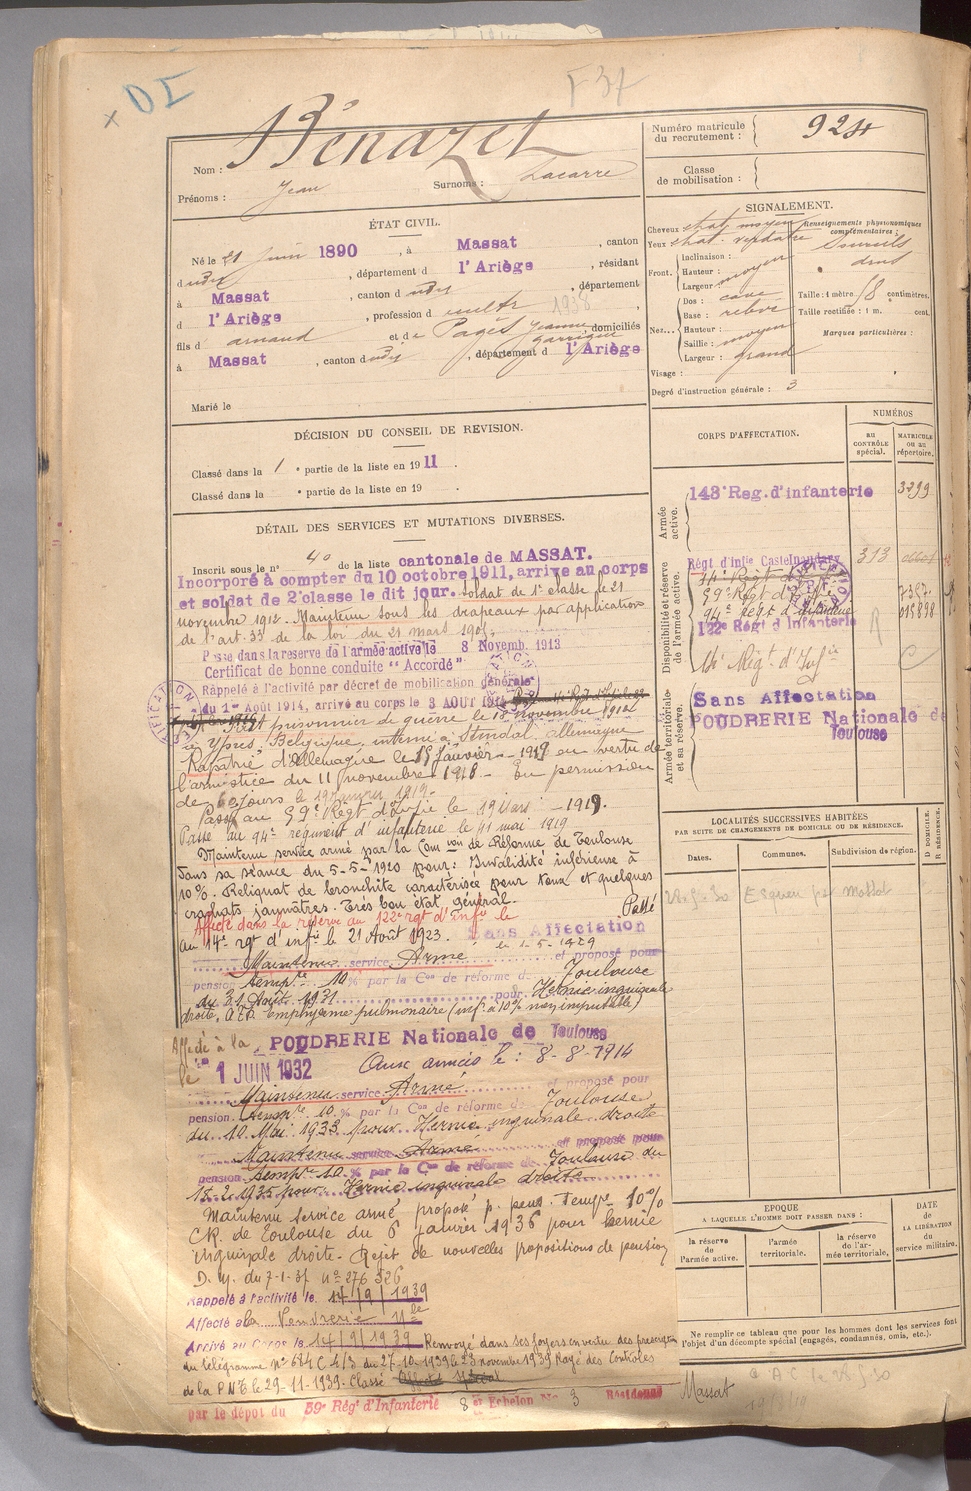 DI
F 37
Bénazet
Nom :
Prénoms : Jean Surnoms : Lacarre
Numéro matricule du recrutement : 924
Classe de mobilisation :
ÉTAT CIVIL.
Né le 21 Juin 1890, à Massat, canton
dudit, département d l'Ariège, résidant
à Massat, canton dudit, département
d l'Ariège, profession d cultr 1938,
fils d arnaud et de Pagès Jeanne garrigue domiciliés
à Massat, canton dudit, département d l'Ariège
Marié le
SIGNALEMENT.
Cheveux chat moyen
Yeux chat. verdatre
Renseignements physionomiques complémentaires :
Sourcils droits
Front. Inclinaison :
Hauteur : moyen
Largeur :
Nez... Dos : cave
Base : relevé
Hauteur :
Saillie : moyen
Largeur : grand
Taille : 1 mètre 58 centimètres.
Taille rectifiée : 1 m. cent.
Marques particulières :
Visage :
Degré d'instruction générale : 3
DÉCISION DU CONSEIL DE REVISION.
Classé dans la 1 e partie de la liste en 1911.
Classé dans la e partie de la liste en 19 .
DÉTAIL DES SERVICES ET MUTATIONS DIVERSES.
Inscrit sous le n° 40 de la liste cantonale de MASSAT.
Incorporé à compter du 10 octobre 1911, arrive au corps
et soldat de 2e classe le dit jour. Soldat de 1e classe le 21
novembre 1912. Maintenu sous les drapeaux par application
de l'art. 33 de la loi du 21 mars 1905.
Passe dans la reserve de l'armée active le 8 Novemb. 1913
Certificat de bonne conduite "Accordé"
Rappelé à l'activité par décret de mobilisation générale
du 1er Août 1914, arrivé au corps le 3 AOUT 1914
prisonnier de guerre le 18 novembre 1914
à Ypres, Belgique, interné à Stendal. allemagne
Rapatrié d'Allemagne le 15 Janvier 1919 en vertu de
l'armistice du 11 novembre 1918. En permission
de 60 jours le 19 janvier 1919.
Passé au 59e Régt d'Infie le 19 mars 1919.
Passé au 94e regiment d'infanterie le 11 mai 1919
Maintenu service armé par la Comion de Réforme de Toulouse
dans sa séance du 5-5-1920 pour : Invalidité inférieure à
10%. Reliquat de bronchite caractérisée pour toux et quelques
crachats jaunâtres. Très bon état général.
Affecté dans la reserve au 122e rgt d'Infie le Passé
au 14e rgt d'infie le 21 Août 1923. Sans Affectation
le 1-5-1929
Maintenu service Armé et proposé pour
pension tempre 10 % par la Con de réforme de Toulouse
du 31 Août 1931 pour Hernie inguinale
droite. emphyème pulmonaire (inf. à 10% non imputable)
Affecté à la POUDRERIE Nationale de Toulouse
le 1 JUIN 1932 Aux armées le : 8-8-1914
Maintenu service Armé et proposé pour
pension tempre 10 % par la Con de réforme de Toulouse
du 10 Mai 1933 pour Hernie inguinale droite
Maintenu service Armé et proposé pour
pension tempre 10 % par la Con de réforme de Toulouse du
18-2-1935 pour Hernie inguinale droite
Maintenu Service armé proposé p. pens. Tempre 10%
CR. de Toulouse du 6 janvier 1936 pour hernie
inguinale droite. Rejet de nouvelles propositions de pension
D. M. du 7-1-37 n° 276 326
Rappelé à l'activité le 14/9/1939
Affecté à la Poudrerie Nle
Arrivé au Corps le 14/9/1939 Renvoyé dans ses foyers en vertu des prescrip
du télégramme n° 684 C 4/3 du 27-10-1939 le 23 novembre 1939 Rayé des Contrôles
de la P.N.T. le 29-11-1939. Classé Affecté Spécial
par le dépot du 59e Rég' d'Infanterie 8 Echelon No 3 Résidence
CORPS D'AFFECTATION.
NUMÉROS
AU CONTRÔLE spécial.
MATRICULE ou au répertoire.
Armée active.
148e Reg. d'infanterie 3299
Disponibilité et réserve de l'armée active.
Régt d'Infie Castelnaudary 313
59e Régt d'Infie 7397
94e Régt d'Infanterie 015898
122e Régt d'Infanterie
14e Régt d'Infie
Armée territoriale et sa réserve.
Sans Affectation
POUDRERIE Nationale de
Toulouse
LOCALITÉS SUCCESSIVES HABITÉES
PAR SUITE DE CHANGEMENTS DE DOMICILE OU DE RÉSIDENCE.
Dates. Communes. Subdivision de région. D DOMICILE. R RÉSIDENCE.
28-5-30 Esquen par Massat
EPOQUE
A LAQUELLE L'HOMME DOIT PASSER DANS :
la réserve de l'armée active.
l'armée territoriale.
la réserve de l'armée territoriale.
DATE de LA LIBÉRATION du service militaire.
Ne remplir ce tableau que pour les hommes dont les services font
l'objet d'un décompte spécial (engagés, condamnés, omis, etc.).
Massat